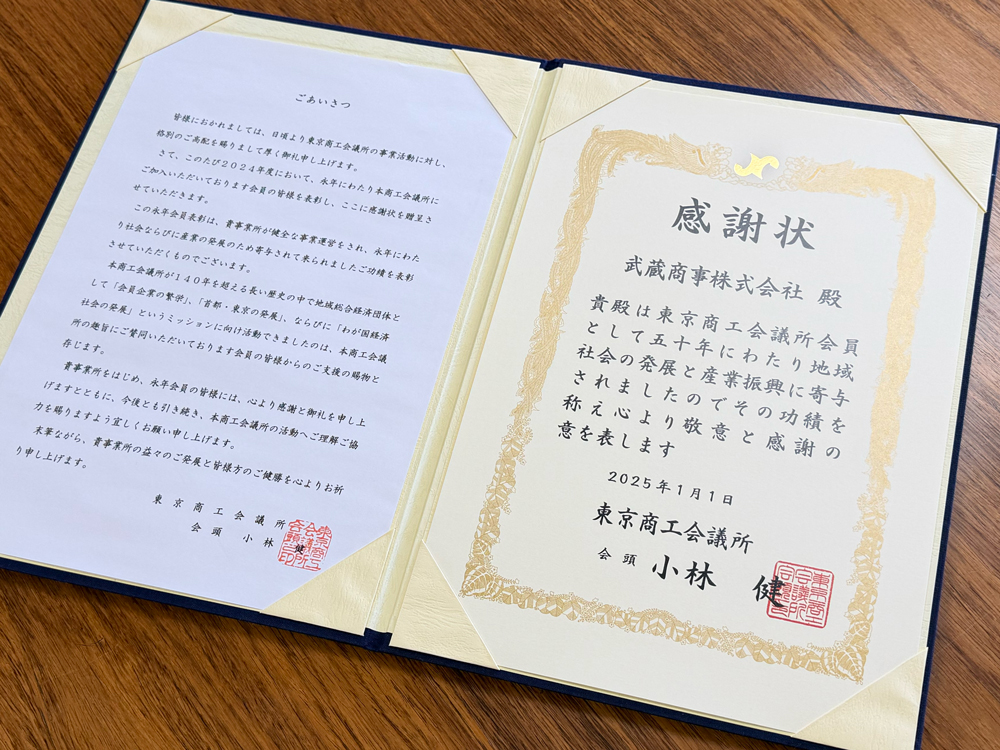 ごあいさつ
皆様におかれましては、日頃より東京商工会議所の事業活動に対し、
格別のご高配を賜りまして厚く御礼申し上げます。
さて、このたび2024年度において、永年にわたり本商工会議所に
ご加入いただいております会員の皆様を表彰し、ここに感謝状を贈呈さ
せていただきます。
この永年会員表彰は、貴事業所が健全な事業運営をされ、永年にわた
り社会ならびに産業の発展のため寄与されて来られましたご功績を表彰
させていただくものでございます。
本商工会議所が140年を超える長い歴史の中で地域総合経済団体と
して「会員企業の繁栄」、「首都・東京の発展」、ならびに「わが国経済
社会の発展」というミッションに向け活動できましたのは、本商工会議
所の趣旨にご賛同いただいております会員の皆様からのご支援の賜物と
存じます。
貴事業所をはじめ、永年会員の皆様には、心より感謝と御礼を申し上
げますとともに、今後とも引き続き、本商工会議所の活動へご理解ご協
力を賜りますよう宜しくお願い申し上げます。
末筆ながら、貴事業所の益々のご発展と皆様方のご健勝を心よりお祈
り申し上げます。
東京商工会議所
会頭 小林 健
感謝状
武蔵商事株式会社 殿
貴殿は東京商工会議所会員
として五十年にわたり地域
社会の発展と産業振興に寄与
されましたのでその功績を
称え心より敬意と感謝の
意を表します
2025年1月1日
東京商工会議所
会頭 小林 健